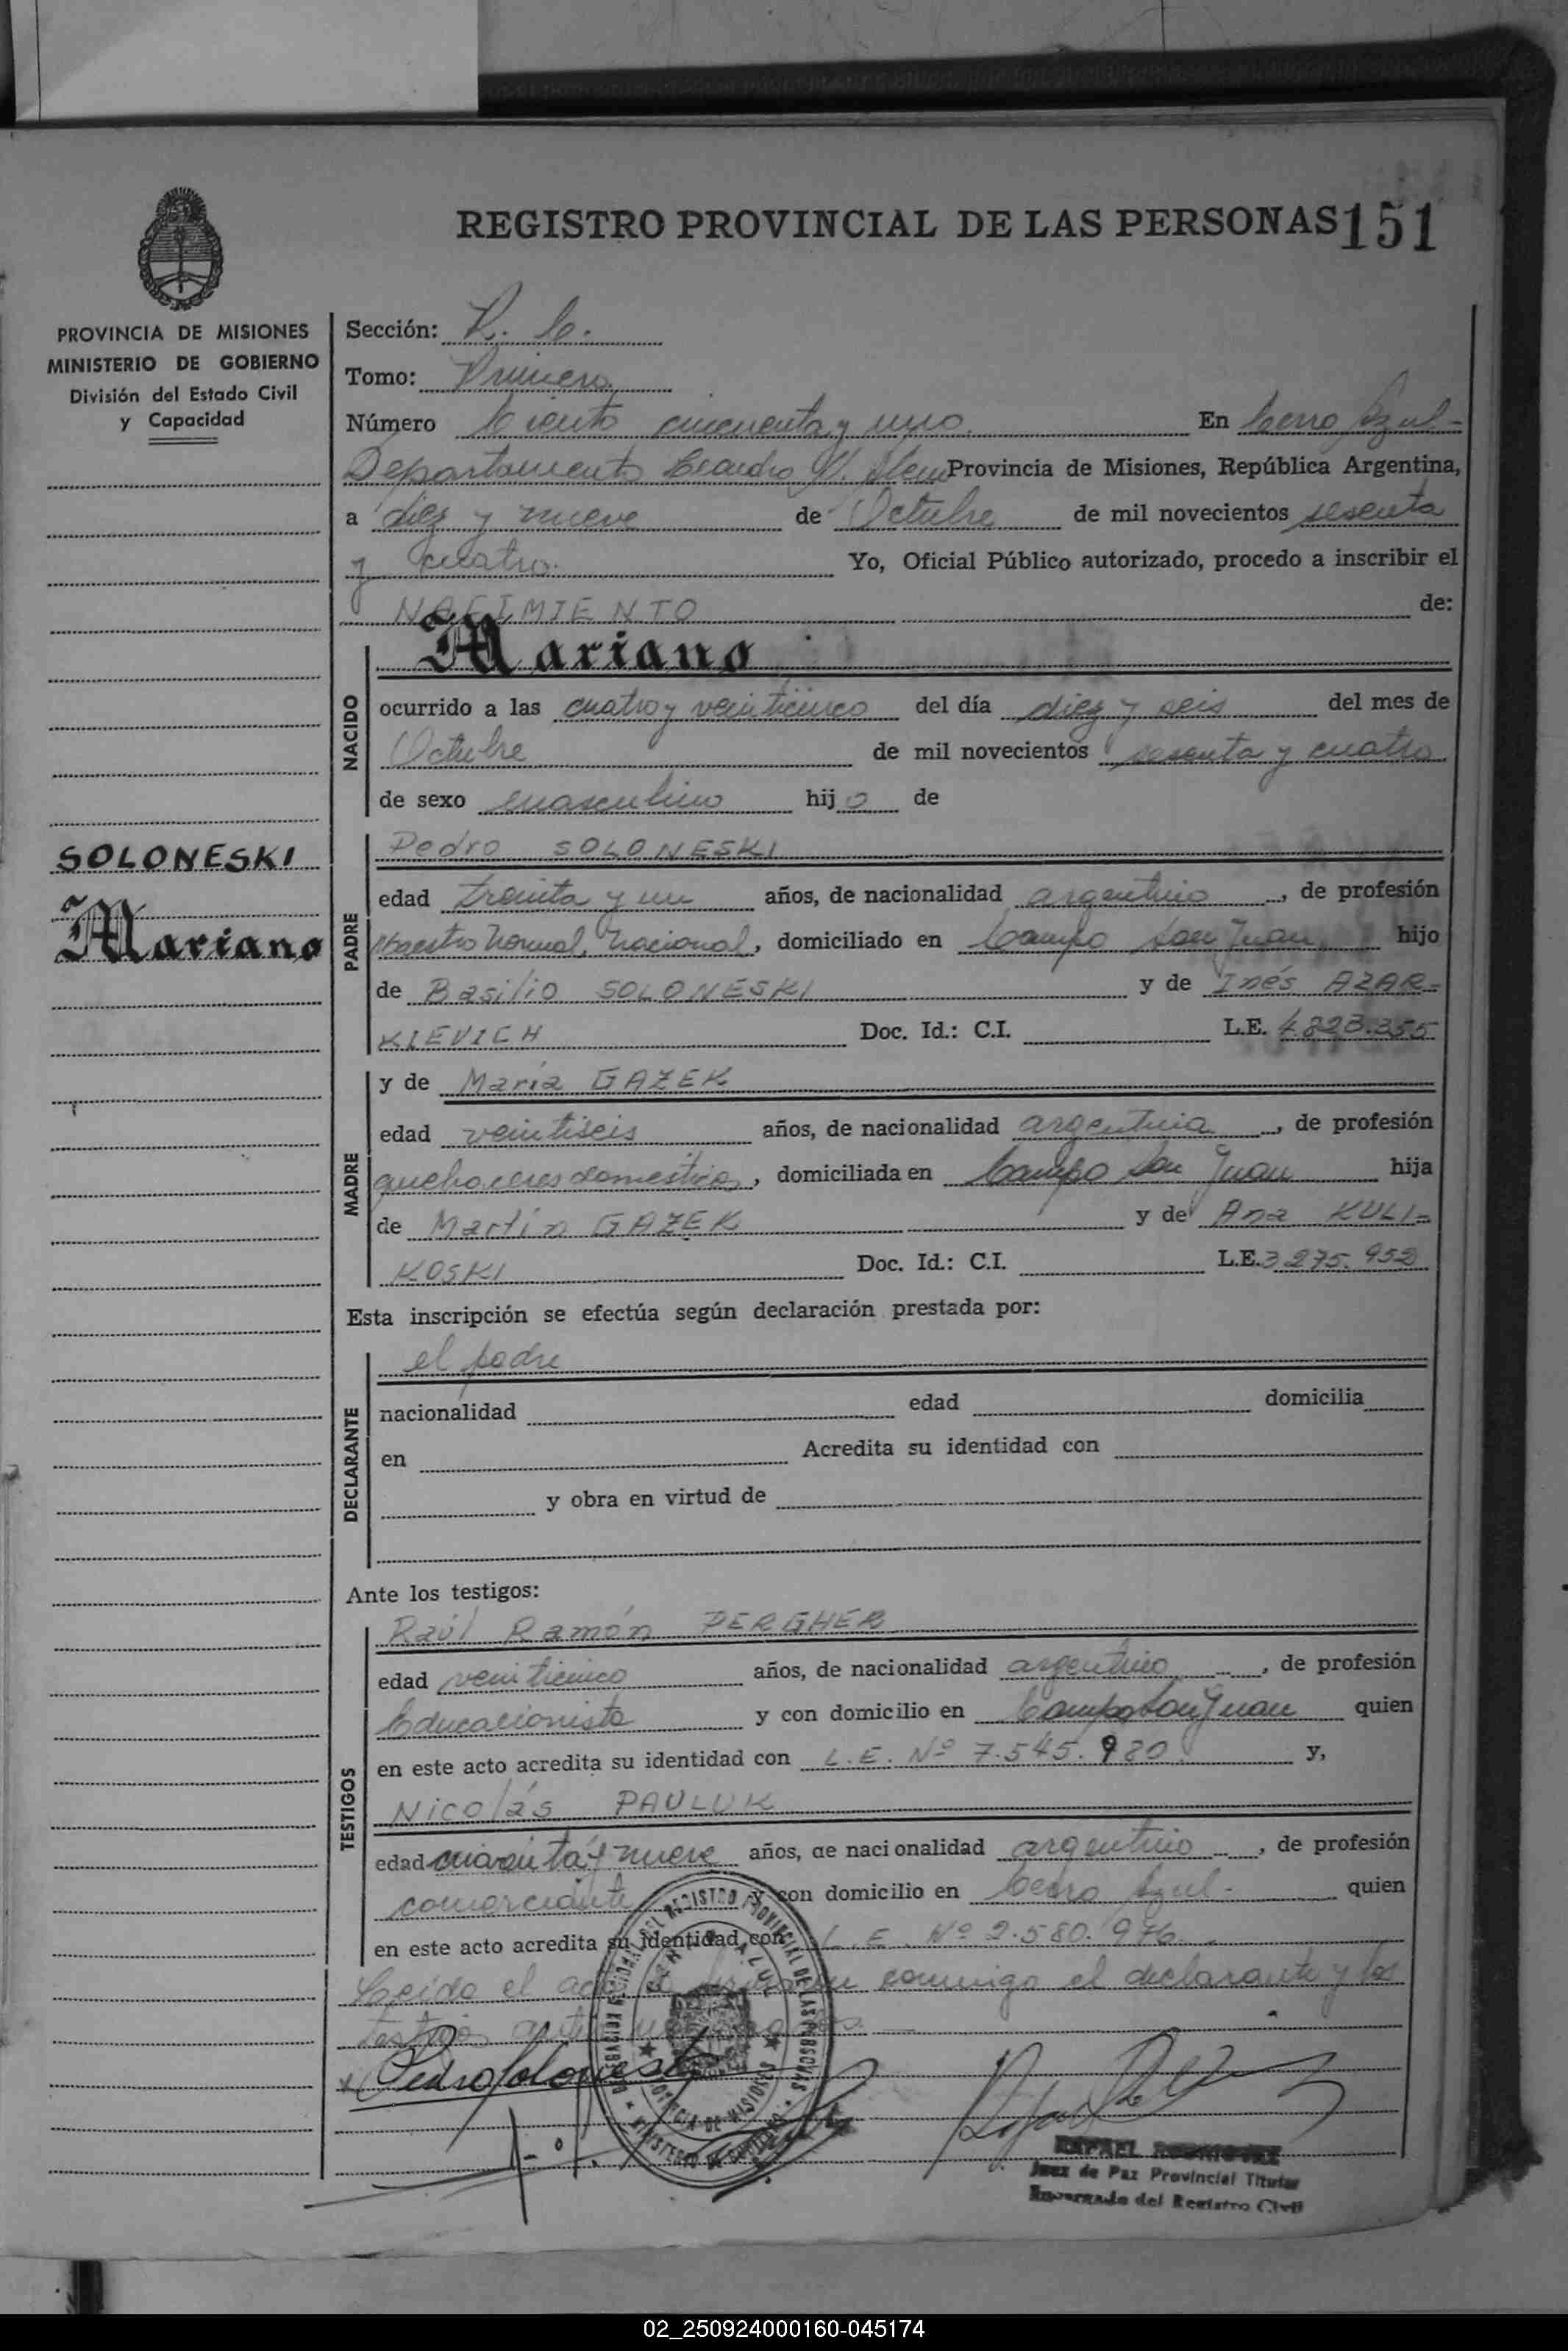 REGISTRO PROVINCIAL DE LAS PERSONAS 151
PROVINCIA DE MISIONES
MINISTERIO DE GOBIERNO
División del Estado Civil
y Capacidad
SOLONESKI
Mariano
Sección: R. C.
Tomo: Primero
Número Ciento cincuenta y uno En Cerro Azul-
Departamento Leandro N. Alem Provincia de Misiones, República Argentina,
a diez y nueve de Octubre de mil novecientos sesenta
y cuatro. Yo, Oficial Público autorizado, procedo a inscribir el
NACIMIENTO de:
Mariano
NACIDO
ocurrido a las cuatro y veinticinco del día diez y seis del mes de
Octubre de mil novecientos sesenta y cuatro
de sexo masculino hijo de
PADRE
Pedro SOLONESKI
edad treinta y un años, de nacionalidad argentino, de profesión
Maestro Normal Nacional, domiciliado en Campo San Juan hijo
de Basilio SOLONESKI y de Inés AZAR-
KIEVICH Doc. Id.: C.I. L.E. 4.823.355
MADRE
y de María GAZEK
edad veintiseis años, de nacionalidad argentina, de profesión
quehaceres domesticos, domiciliada en Campo San Juan hija
de Martín GAZEK y de Ana KULI-
KOSKI Doc. Id.: C.I. L.E. 3.275.952
Esta inscripción se efectúa según declaración prestada por:
DECLARANTE
el padre
nacionalidad edad domicilia
en Acredita su identidad con
y obra en virtud de
Ante los testigos:
TESTIGOS
Raúl Ramón PERGHER
edad veinticinco años, de nacionalidad argentino, de profesión
Educacionista y con domicilio en Campo San Juan quien
en este acto acredita su identidad con L.E. Nº 7.545.980 y,
Nicolás PAULUK
edad cuarenta y nueve años, de nacionalidad argentino, de profesión
comerciante y con domicilio en Cerro Azul- quien
en este acto acredita su identidad con L.E. Nº 2.580.976
Leída el acta firman conmigo el declarante y los
testigos
Pedro Soloneski
DEL REGISTRO PROVINCIAL DE LAS PERSONAS
CERRO AZUL
PROVINCIA DE MISIONES
MINISTERIO DE GOBIERNO
RAFAEL RODRIGUEZ
Juez de Paz Provincial Titular
Encargado del Registro Civil
02_250924000160-045174